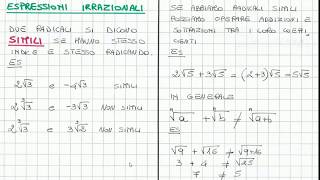 ESPRESSIONI IRRAZIONALI
DUE RADICALI SI DICONO
SIMILI SE HANNO STESSO
INDICE E STESSO RADICANDO.
ES
2√3 e -4√3 SIMILI
e NON SIMILI
e NON SIMILI
SE ABBIAMO RADICALI SIMILI
POSSIAMO OPERARE ADDIZIONI E
SOTTRAZIONI TRA I LORO COEFFI
CIENTI
ES
2√5 + 3√5 = (2+3)√5 = 5√5
IN GENERALE
ⁿ√a + ⁿ√b ≠ ⁿ√a+b
ES
√9 + √16 ≠ √9+16
3 + 4 ≠ √25
7 ≠ 5